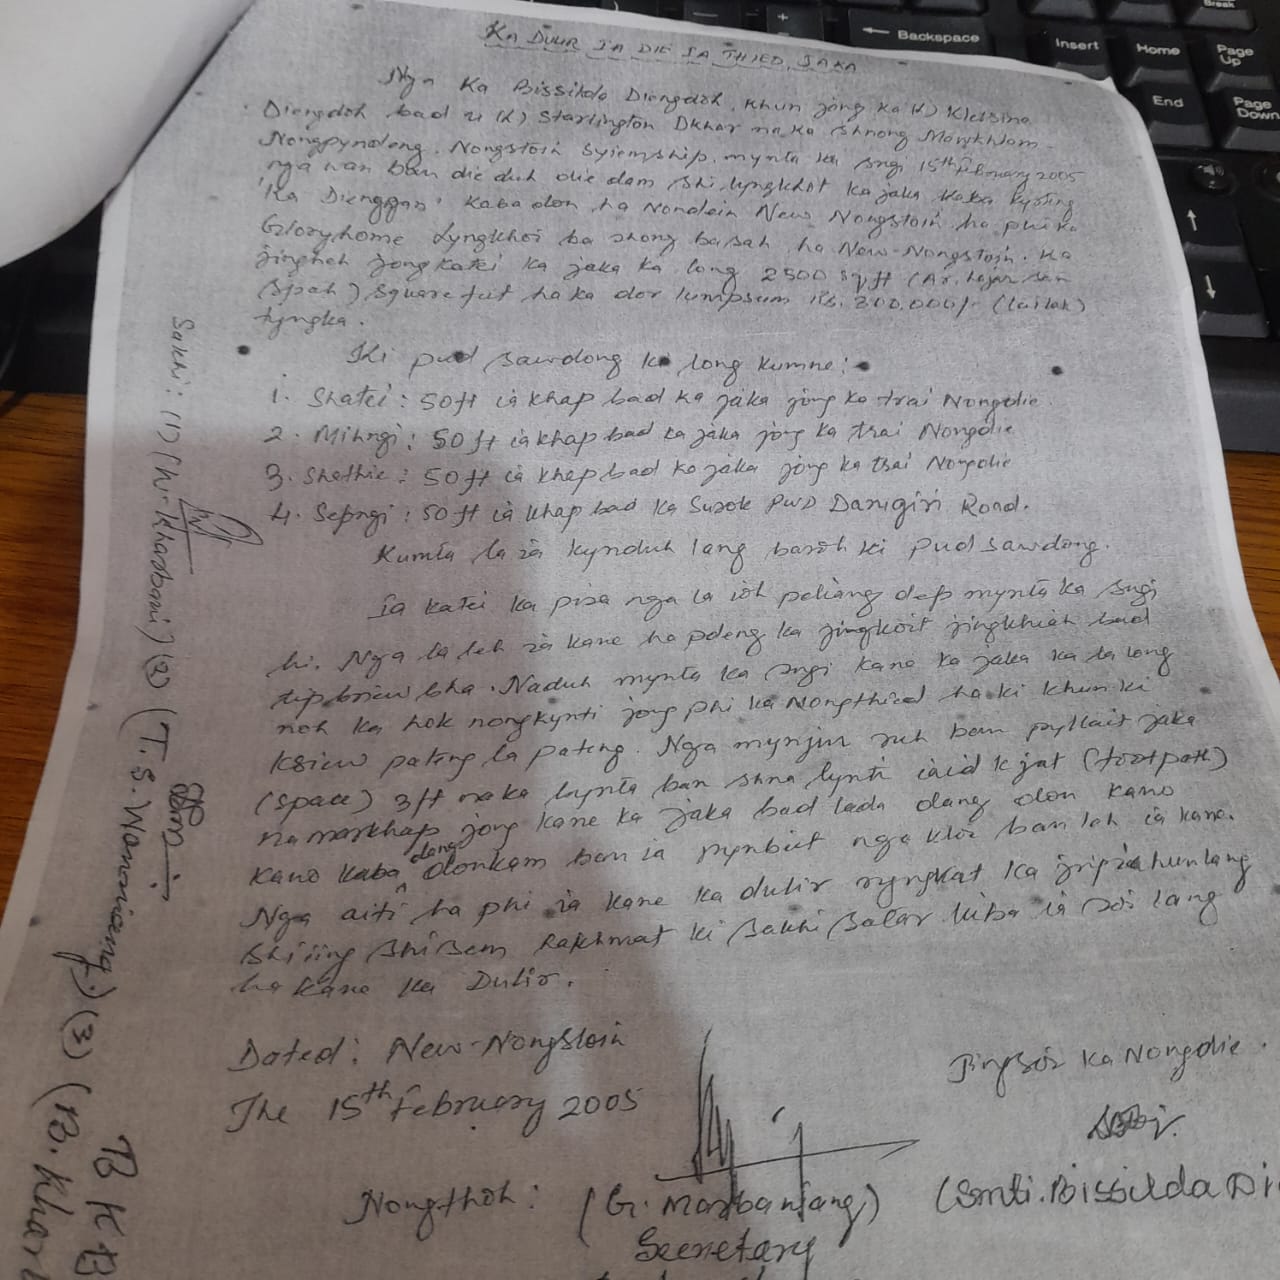 KA DULIR IA DIE IA THIED JAKA
Nga Ka Bissilda Diengdoh, khun jong ka (L) Klessina
Diengdoh bad u (L) Starlington Dkhar na ka shnong Mawkhlam-
Nongpyndeng, Nongstoin Syiemship, mynta ka sngi 15th February 2005
nga wan ban die duh die dam shi lyngkhot ka jaka kaba kyrteng
'Ka Dienggan' kaba don ha Nondein New Nongstoin ha phi ka
Gloryhome Lyngkhoi ba shong basah ha New-Nongstoin. Ka
jingheh jong katei ka jaka ka long 2500 sq.ft (Ar. hajar san
spah) square feet ha ka dor lumpsum Rs. 300,000/- (lai lak)
tyngka.
Ki pud sawdong ki long kumne:
1. Shatei: 50ft ia khap bad ka jaka jong ka trai Nongdie.
2. Mihngi: 50 ft ia khap bad ka jaka jong ka trai Nongdie
3. Shathie: 50 ft ia khap bad ka jaka jong ka trai Nongdie
4. Sepngi: 50 ft ia khap bad ka Surok PWD Danigiri Road.
Kumta la ia kynduh lang baroh ki pud sawdong.
Ia katei ka pisa nga la ioh pdiang dep mynta ka sngi
hi. Nga la leh ia kane ha pdeng ka jingkoit jingkhiah bad
tip briew bha. Naduh mynta ka sngi kane ka jaka ka la long
noh ka hok nongkynti jong phi ka Nongthied ha ki khun ki
ksiew pateng la pateng. Nga mynjur ruh ban pyllait jaka
(space) 3ft na ka bynta ban shna lynti iaid kjat (footpath)
na markhap jong kane ka jaka bad lada dang don kano
kano kaba dang donkam ban ia pynbeit nga kloi ban leh ia kane.
Nga aiti ha phi ia kane ka dulir ryngkat ka jingiahunlang
shi iing shi sem khamat ki sakhi satar kiba ia soi lang
ha kane ka Dulir.
Dated: New-Nongstoin
The 15th February 2005
Jingsoi ka Nongdie.
Nongthoh: (G. Marbaniang)
Secretary
(Smti. Bissilda Di
Sakhi: (1) (W. Khardbani) (2) (T.S. Wanniang) (3) (B. Khar
BKB